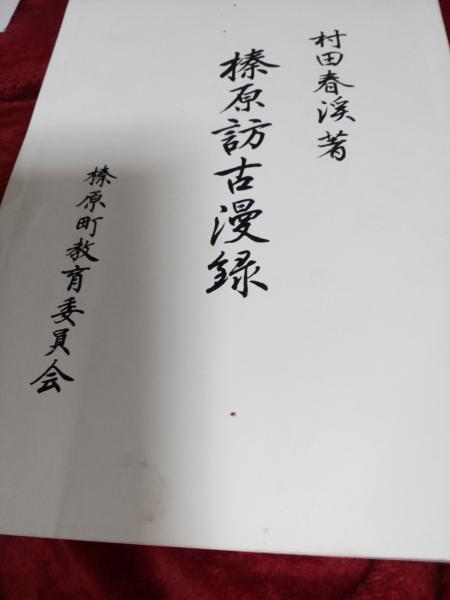 村田春溪著
榛原訪古漫録
榛原町教育委員会